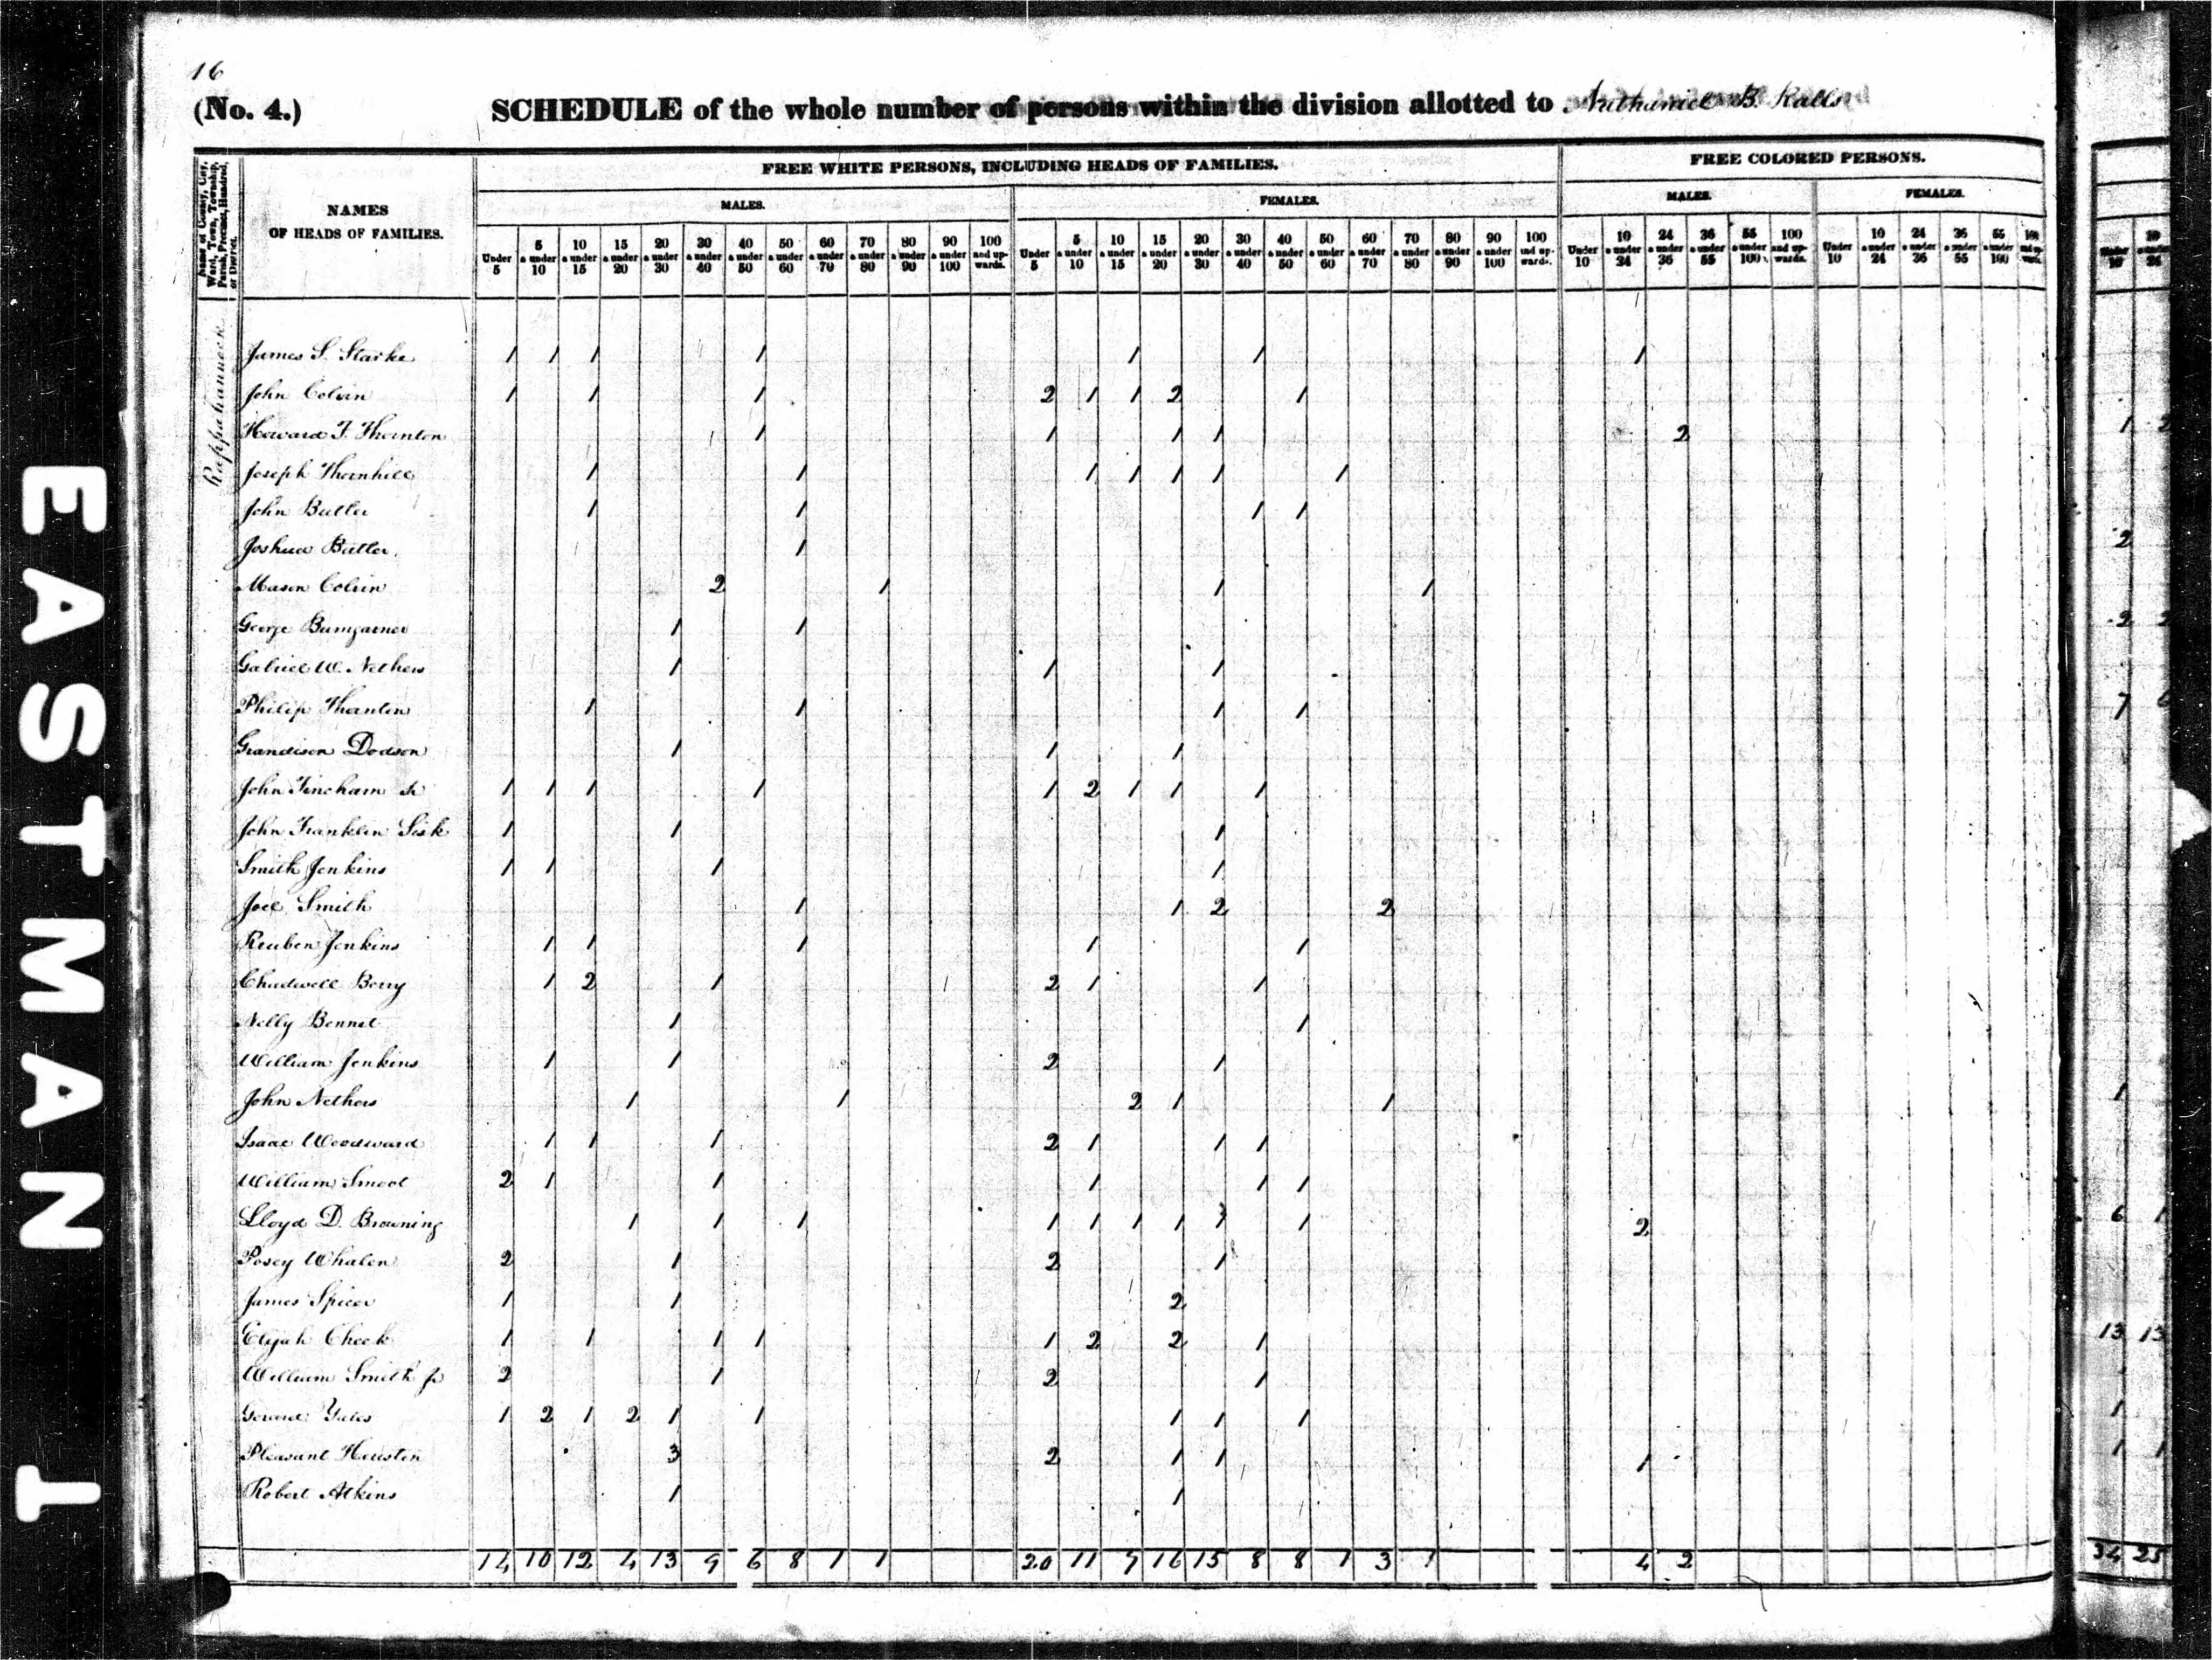 16
(No. 4.) SCHEDULE of the whole number of persons within the division allotted to Nathaniel B. Ralls
Name of County, City, Ward, Town, Township, Parish, Precinct, Hundred, or District.
NAMES OF HEADS OF FAMILIES.
FREE WHITE PERSONS, INCLUDING HEADS OF FAMILIES.
FREE COLORED PERSONS.
MALES. FEMALES. MALES. FEMALES.
Under 5 | 5 & under 10 | 10 & under 15 | 15 & under 20 | 20 & under 30 | 30 & under 40 | 40 & under 50 | 50 & under 60 | 60 & under 70 | 70 & under 80 | 80 & under 90 | 90 & under 100 | 100 and upwards. | Under 5 | 5 & under 10 | 10 & under 15 | 15 & under 20 | 20 & under 30 | 30 & under 40 | 40 & under 50 | 50 & under 60 | 60 & under 70 | 70 & under 80 | 80 & under 90 | 90 & under 100 | 100 and upwards. | Under 10 | 10 & under 24 | 24 & under 36 | 36 & under 55 | 55 & under 100 | 100 and upwards. | Under 10 | 10 & under 24 | 24 & under 36 | 36 & under 55 | 55 & under 100 | 100 and upwards.
Rappahannock
James S. Starke 1 1 1 1 1 1 1
John Colvin 1 1 1 2 1 1 2 1
Howard F. Thornton 1 1 1 1 2 1 2
Joseph Thornhill 1 1 1 1 1 1 1
John Butler 1 1 1 1
Joshua Butler 1 2
Mason Colvin 2 1 1 1
George Bumgarner 1 1 2 2
Gabriel W. Nethers 1 1 1
Philip Thornton 1 1 1 1 7 6
Grandison Dodson 1 1 1
John Fincham Sr 1 1 1 1 1 2 1 1 1
John Franklin Sisk 1 1 1
Smith Jenkins 1 1 1 1
Joel Smith 1 1 2 2
Reuben Jenkins 1 1 1 1 1
Chadwell Berry 1 2 1 2 1 1
Nelly Bennet 1 1
William Jenkins 1 1 2 1
John Nethers 1 1 2 1 1 1
Isaac Woodward 1 1 1 2 1 1 1
William Smoot 2 1 1 1 1 1
Lloyd D. Browning 1 1 1 1 1 1 1 1 1 2 6 1
Posey Whalen 2 1 2 1
James Spicer 1 1 2
Elijah Cheek 1 1 1 1 1 2 2 1 13 13
William Smith Jr 2 1 2 1
Yates 1 2 1 2 1 1 1 1 1 1
Pleasant Houston 3 2 1 1 1 1 1
Robert Atkins 1 1
14 10 12 4 13 9 6 8 1 1 20 11 9 16 15 8 8 1 3 1 4 2 34 25
EASTMAN